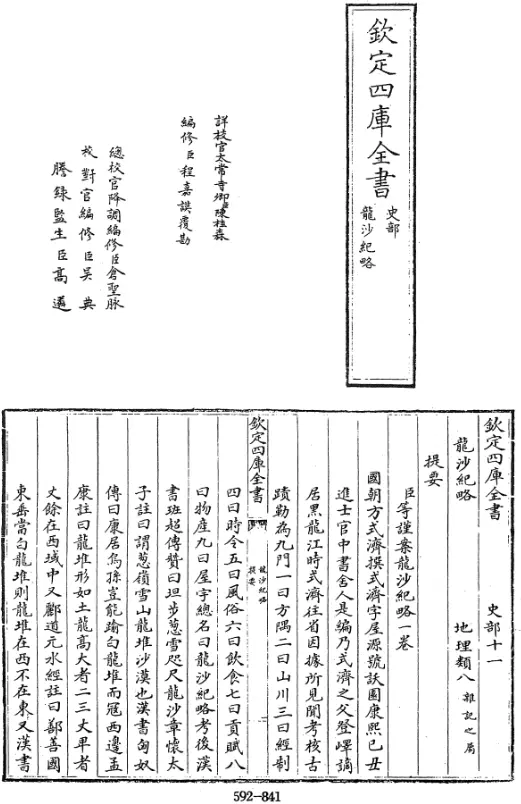 欽定四庫全書
史部
龍沙紀略
詳校官太常寺卿臣陳桂森
編修臣程嘉謨覆勘
總校官降調編修臣倉聖脈
校對官編修臣吳典
謄錄監生臣高邁
欽定四庫全書
史部十一
龍沙紀略
地理類八雜記之屬
提要
臣等謹案龍沙紀略一卷
國朝方式濟撰式濟字屋源號沃園康熙己丑
進士官中書舍人是編乃式濟之父登嶧謫
居黑龍江時式濟往省因據所見聞考核古
蹟勒為九門一曰方隅二曰山川三曰經制
欽定四庫全書
龍沙紀略
提要
四曰時令五曰風俗六曰飲食七曰貢賦八
曰物產九曰屋宇總名曰龍沙紀略考後漢
書班超傳贊曰坦步蔥雪咫尺龍沙章懷太
子註曰謂蔥嶺雪山龍堆沙漠也漢書匈奴
傳曰康居烏孫豈能踰白龍堆而寇西邊孟
康註曰龍堆形如土龍高大者二三丈卑者
丈餘在西域中又酈道元水經註曰鄯善國
東垂當白龍堆則龍堆在西不在東又漢書
592-841